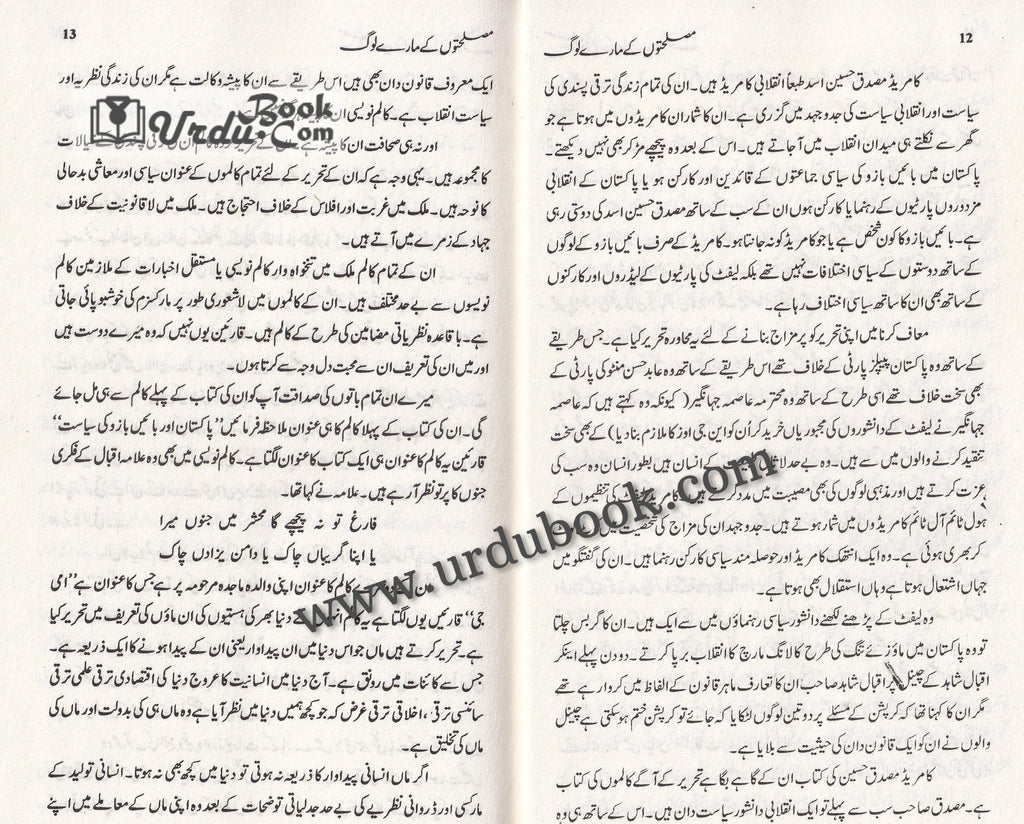 12
مصلحتوں کے مارے لوگ
کامریڈ مصدق حسین اسد طبعاً انقلابی کامریڈ ہیں۔ ان کی تمام زندگی ترقی پسندی کی
سیاست اور انقلابی سیاست کی جدوجہد میں گزری ہے۔ ان کا شمار ان کامریڈوں میں ہوتا ہے جو
گھر سے نکلتے ہی میدان انقلاب میں آ جاتے ہیں۔ اس کے بعد وہ پیچھے مڑ کر بھی نہیں دیکھتے۔
پاکستان میں بائیں بازو کی سیاسی جماعتوں کے قائدین اور کارکن ہو یا پاکستان کے انقلابی
مزدوروں پارٹیوں کے رہنما یا کارکن ہوں ان کے سب کے ساتھ مصدق حسین اسد کی دوستی رہی
ہے۔ بائیں بازو کا کون شخص ہے یا جو کامریڈ کو نہ جانتا ہو۔ کامریڈ کے صرف بائیں بازو کے لوگوں
کے ساتھ دوستوں کے سیاسی اختلافات نہیں تھے بلکہ لیفٹ کی پارٹیوں کے لیڈروں اور کارکنوں
کے ساتھ بھی ان کا ساتھ سیاسی اختلاف رہا ہے۔
معاف کرنا میں اپنی تحریر کو پر مزاح بنانے کے لئے یہ محاورہ تحریر کیا ہے۔ جس طریقے
کے ساتھ وہ پاکستان پیپلز پارٹی کے خلاف تھے اس طریقے کے ساتھ وہ عابد حسن منٹو کی پارٹی کے
بھی سخت خلاف تھے اسی طرح کے ساتھ وہ محترمہ عاصمہ جہانگیر (کیونکہ وہ کہتے ہیں کہ عاصمہ
جہانگیر نے لیفٹ کے دانشوروں کی مجبوریاں خرید کر اُن کو این جی اوز کا ملازم بنا دیا) کے بھی سخت
تنقید کرنے والوں میں سے ہیں۔ وہ بے حد کے انسان ہیں بطور انسان وہ سب کی
عزت کرتے ہیں اور مذہبی لوگوں کی بھی مصیبت میں مدد کرتے ہیں۔ کامریڈ لیفٹ کی تنظیموں کے
ہول ٹائم آل ٹائم کامریڈوں میں شمار ہوتے ہیں۔ جدوجہد ان کی مزاج کی شخصیت میں
کر بھری ہوئی ہے۔ وہ ایک انتھک کامریڈ اور حوصلہ مند سیاسی کارکن رہنما ہیں۔ ان کی گفتگو میں
جہاں اشتعال ہوتا ہے وہاں استقلال بھی ہوتا ہے۔
وہ لیفٹ کے پڑھنے لکھنے دانشور سیاسی رہنماؤں میں سے ایک ہیں۔ ان کا گر بس چلتا
تو وہ پاکستان میں ماؤزے تنگ کی طرح کا لانگ مارچ کا انقلاب برپا کرتے۔ دو دن پہلے اینکر
اقبال شاہد کے چینل پر اقبال شاہد صاحب ان کا تعارف ماہر قانون کے الفاظ میں کروا رہے تھے
مگر ان کا کہنا تھا کہ کرپشن کے مسئلے پر دو تین لوگوں لٹکایا کہ جائے تو کرپشن ختم ہوسکتی ہے چینل
والوں نے ان کو ایک قانون دان کی حیثیت سے بلا رہا ہے۔
کامریڈ مصدق حسین کی کتاب ان کے گاہے بگاہے تحریر کے آگے کالموں کی کتاب
ہے۔ مصدق صاحب سب سے پہلے تو ایک انقلابی دانشور سیاست دان ہیں۔ اس کے ساتھ ہی وہ
13
مصلحتوں کے مارے لوگ
ایک معروف قانون دان بھی ہیں اس طریقے سے ان کا پیشہ وکالت ہے مگر ان کی زندگی نظریہ اور
سیاست انقلاب ہے۔ کالم نویسی ان
اور نہ ہی صحافت ان کا پیشہ ہے
کا مجموعہ ہیں۔ یہی وجہ ہے کہ ان کے تحریر کے لئے تمام کالموں کے عنوان سیاسی اور معاشی بدحالی
کا نوحہ ہیں۔ ملک میں غربت اور افلاس کے خلاف احتجاج ہیں۔ ملک میں لاقانونیت کے خلاف
جہاد کے زمرے میں آتے ہیں۔
ان کے تمام کالم ملک میں تنخواہ دار کالم نویسی یا مستقل اخبارات کے ملازمین کالم
نویسوں سے بے حد مختلف ہیں۔ ان کے کالموں میں لاشعوری طور پر مارکسزم کی خوشبو پائی جاتی
ہے۔ باقاعدہ نظریاتی مضامین کی طرح کے کالم ہیں۔ قارئین یوں نہیں کہ وہ میرے دوست ہیں
اور میں ان کی تعریف ان سے محبت دل وجہ سے کرتا ہوں۔
میرے ان تمام باتوں کی صداقت آپ کو ان کی کتاب کے پہلے کالم سے ہی مل جائے
گی۔ ان کی کتاب کے پہلا کالم کا ہی عنوان ملاحظہ فرمائیں "پاکستان اور بائیں بازو کی سیاست"
قارئین یہ کالم کا عنوان ہی ایک کتاب کا عنوان لگتا ہے۔ کالم نویسی میں بھی وہ علامہ اقبال کے فکری
جنوں کا پرتو نظر آ رہے ہیں۔ علامہ نے کہا تھا۔
فارغ تو نہ پیچھے گا محشر میں جنوں میرا
یا اپنا گریباں چاک یا دامن یزداں چاک
کالم کا عنوان اپنی والدہ ماجدہ مرحومہ پر ہے جس کا عنوان ہے "امی
جی" قارئین یوں لگتا ہے یہ کالم دنیا بھر کی ہستیوں کی ان ماؤں کی تعریف میں تحریر کیا
ہے۔ تحریر کرتے ہیں ماں جو اس دنیا میں ان پیداوار یعنی ان کے پیدا ہونے کا ایک ذریعہ ہے۔
جس سے کائنات میں رونق ہے۔ آج دنیا میں انسانیت کا عروج دنیا کی اقتصادی ترقی علمی ترقی
سائنسی ترقی، اخلاقی ترقی غرض کہ جو کچھ ہمیں دنیا میں نظر آیا ہے وہ ماں ہی کی بدولت اور ماں کی
ماں کی تخلیق ہے۔
اگر ماں انسانی پیداوار کا ذریعہ نہ ہوتی تو دنیا میں کچھ بھی نہ ہوتا۔ انسانی تولید کے
مارکسی اور ڈروانی نظریے کی بے حد جدلیاتی توضحات کے بعد وہ اپنی ماں کے معاملے میں اپنے
Urdu Book .Com
www.urdubook.com